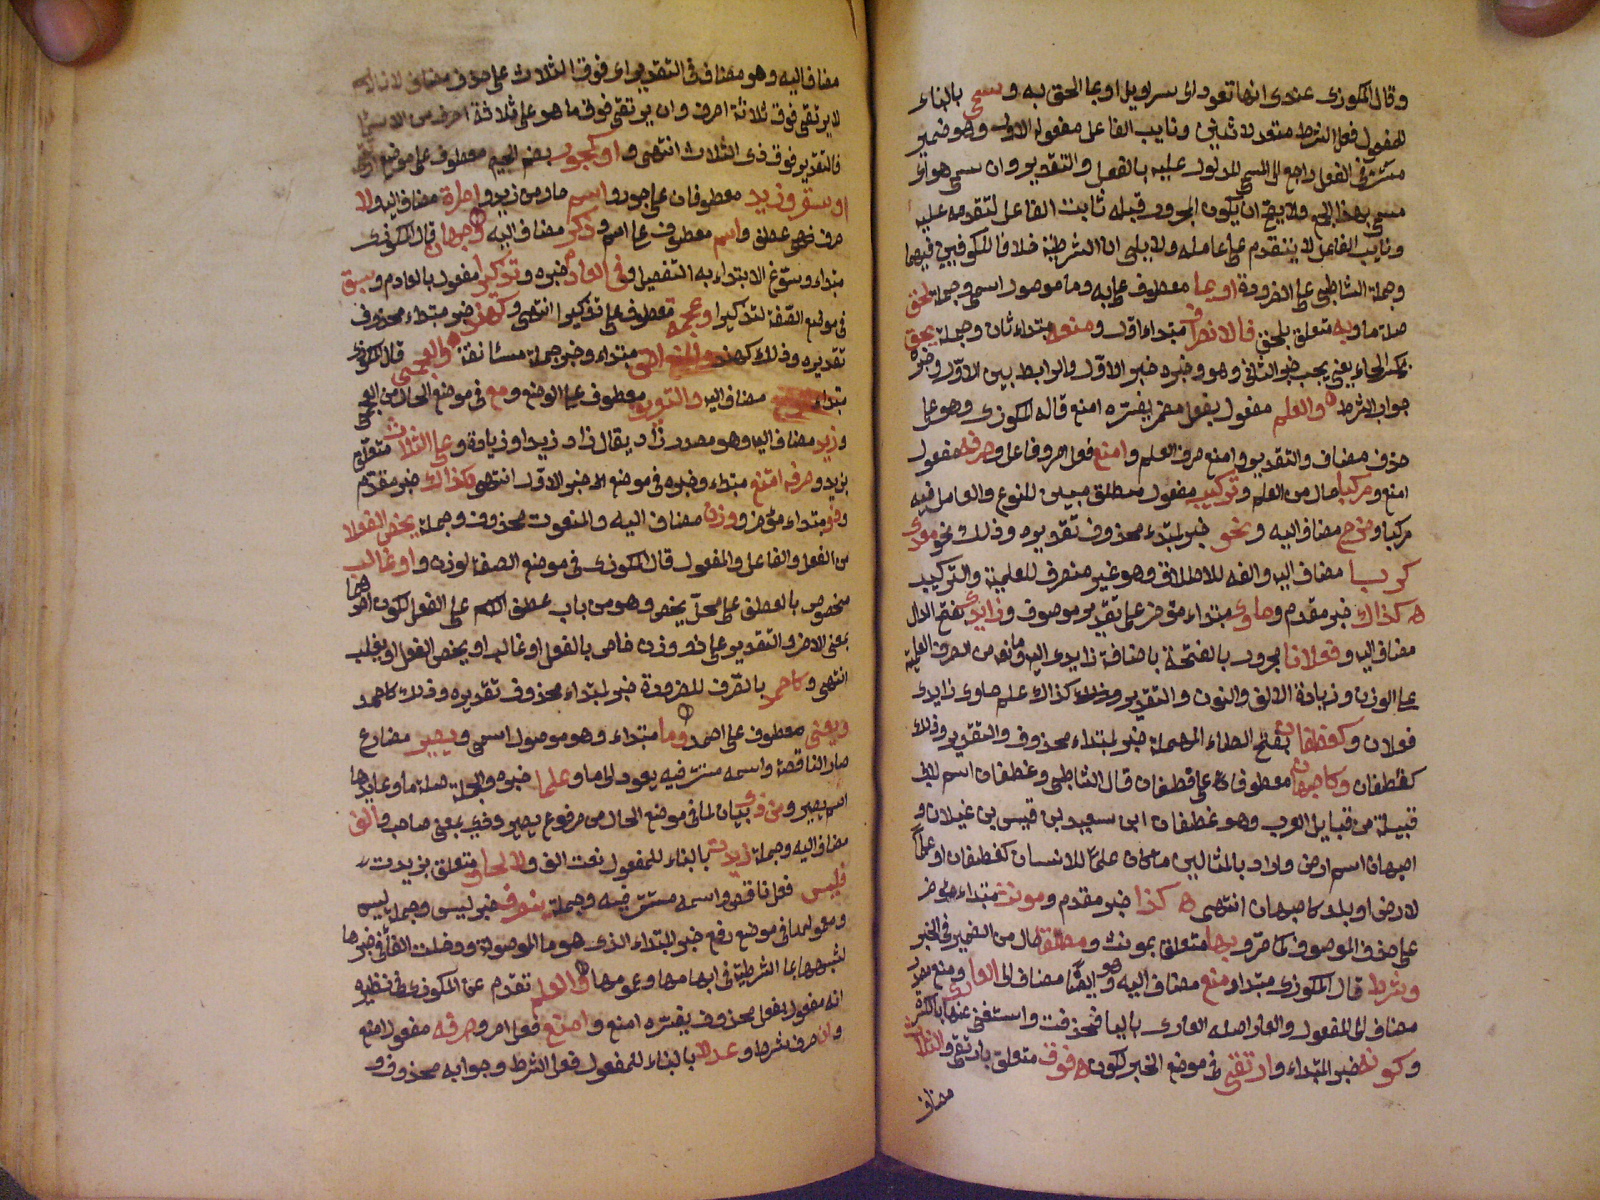 وقال المكودى عندى انها تعود الى سراويل او بما الحق به وسمى بالبناء
للمفعول فعل الشرط متعد لاثنين ونايب الفاعل مفعوله الاول وهو ضمير
مستتر فى الفعل راجع الى المسمى المدلول عليه بالفعل والتقدير وان سمى هو اى
مسمى بهذا الجمع ولا يصح ان يكون المجرور قبله نايب الفاعل لتقدمه عليه
ونايب الفاعل لا يتقدم على عامله ولا يلى ان الشرطية خلافا للكوفيين فيهما
وحمله الشاطبى على الضرورة او بما معطوف على به وما موصول اسمى وجملة لحق
صلة ما وبه متعلق بلحق فالانصراف مبتداء اول ومنعه مبتداء ثان وجملة يحق
بكسر الحاء يعنى يجب خبر الثانى وهو وخبره خبر الاول والرابط بين الاول وخبره
جواب الشرط والعلم مفعول بفعل مضمر يفسره امنع قاله المكودى وهو على
حذف مضاف والتقدير وامنع صرف العلم وامنع فعل امر وفاعل وصرفه مفعول
امنع ومركبا حال من العلم وتركيب مفعول مطلق مبين للنوع والعامل فيه
مركبا ومزج مضاف اليه ونحو خبر لمبتداء محذوف تقديره وذلك نحو معدى
كربا مضاف اليه والفه للاطلاق وهو غير منصرف للعلمية والتركيب
كذاك خبر مقدم وحاوى مبتداء مؤخر على تقدير موصوف وزايدى بفتح الدال
مضاف اليه وفعلانا مجرور بالفتحة باضافة زايدى اليه ومانعه من الصرف العلمية
على الوزن وزيادة الالف والنون والتقدير وكذلك كذاك علم حاوى زايدى
فعلان وكغطفان بفتح الطاء المهملة خبر لمبتداء محذوف والتقدير وذلك
كغطفان وكاصبهان معطوفان على غطفان قال الشاطبى وغطفان اسم لابى
قبيلة من قبايل العرب وهو غطفان ابن سعيد بن قيس بن غيلان و
اصبهان اسم ارض واراد بالمثالين ما كان علما للانسان كغطفان او علما
لارض او بلد كاصبهان انتهى كذا خبر مقدم ومونث مبتداء مؤخر
على حذف الموصوف كما مر وبهاء متعلق بمونث ومطلقا حال من الضمير فى الخبر
وشرط قال المكودى مبتدا ومنع مضاف اليه وهو ايضا مضاف الى العارى ومنع مصدر
مضاف الى المفعول والعار اصله العارى باليا فحذفت واستغنى عنها بالكسرة
وكونه خبر المبتداء وارتقى فى موضع الخبر لكونه فوق متعلق بارتقى والثلاث
مضاف
مضاف اليه وهو مضاف فى التقدير اى فوق الثلاث على حذف مضاف لانه
لا يرتقى فوق ثلاثة احرف وان يرتقى فوق ما هو على ثلاثة احرف من الاسماء
فالتقدير فوق ذى الثلاث انتهى او كجور بضم الجيم معطوف على موضع ارتقى
او سقر وزيد معطوفان على جور واسم حال من زيد وامراة مضاف اليه ولا
حرف نفى عطف واسم معطوف على اسم وذكر مضاف اليه وجهان قال المكودى
مبتداء وسوغ الابتداء به التفصيل وفى العادم خبره وتذكيرا مفعول بالعادم وسبق
فى موضع الصفة لتذكيرا وعجمة معطوف على تذكيرا انتهى وكهند خبر مبتداء محذوف
تقديره وذلك كهند والمنع احق مبتداء وخبر جملة مستانفة والعجمى قال المكودى
مبتداء مضاف اليه والتعريف معطوف على الوضع ومع فى موضع الحال من العجمى
وزيد مضاف اليه وهو مصدر زاد يقال زاد زيدا وزيادة وعلى الثلاث متعلق
بزيد وصرفه امتنع مبتداء وخبره فى موضع الاخبر الاول انتهى وكذاك خبر مقدم
وذو مبتداء مؤخر ووزن مضاف اليه والمنعوت محذوف وجملة يخص الفعلا
من الفعل والفاعل والمفعول قال المكودى فى موضع الصفة لوزن واو غالب
مخفوض بالعطف على محل يخص وهو من باب عطف الاسم على الفعل لكون احدهما
بمعنى الاخر والتقدير على ذو وزن خاص بالفعل او غالب او يخص الفعل او يغلب
انتهى وكاحمد بالصرف للضرورة خبر لمبتداء محذوف تقديره وذلك كاحمد
ويعلى معطوف على احمد وما مبتداء وهو موصول اسمى ويصير مضارع
صار الناقصة واسمه مستتر فيه يعود الى ما وعلما خبره والجملة صلة ما وعايدها
اسم يصير ومن ذى بيان لما فى موضع الحال من مرفوع يصير وذى بمعنى صاحب والف
مضاف اليه وجملة زيدت بالبناء للمفعول نعت الف ولالحاق متعلق بزيدت
فليس فعل ناقص واسمه مستتر فيه وجملة ينصرف خبر ليس وجملة ليس
ومعموليها فى موضع رفع خبر المبتداء الذى هو ما الموصولة ودخلت الفاء فى خبرها
لشبهها بما الشرطية فى ابهامها وعمومها والعلم تقدم عن المكودى فى نظيره
انه مفعول بفعل محذوف يفسره امنع وامنع فعل امر وصرفه مفعول امنع
وان حرف شرط وعدلا بالبناء للمفعول فعل الشرط وجوابه محذوف و